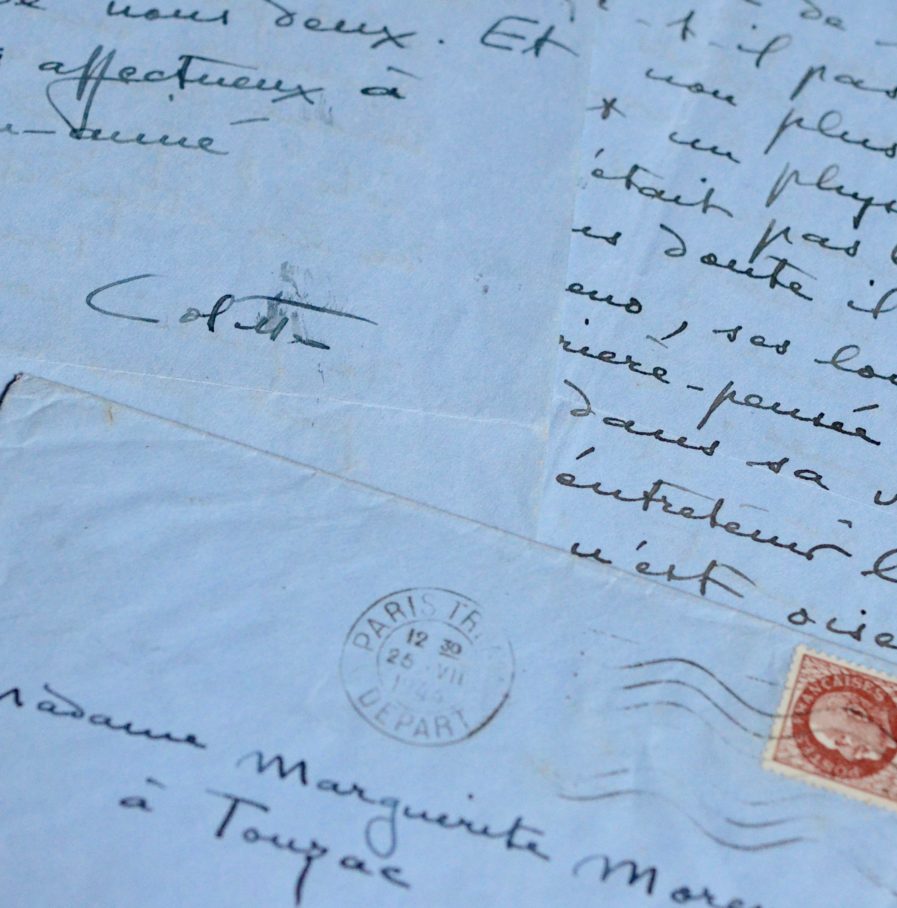 nous deux. Et
affectueux à
Colette
de
-t-il pas
non plus
un phys
était pas
doute il
, ses lou
rière-pensée
dans sa v
entretenir l
n'est oise
PARIS TRI
12 30
25 VII
194
DÉPART
FRANÇAISES
POSTES
Madame Marguerite More
à Touzac